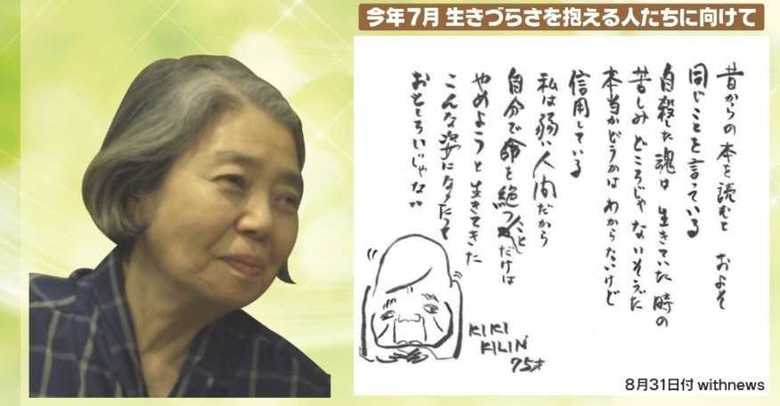 今年7月 生きづらさを抱える人たちに向けて
昔からの本を読むと およそ
同じことを言っている
自殺した魂は 生きていた時の
苦しみどころじゃ ないそうだ
本当かどうかは わからないけど
信用している
私は弱い人間だから
自分で命を絶つことだけは
やめようと生きてきた
こんな姿になったって
おもしろいじゃない
KIKI
KILIN
75才
8月31日付 withnews